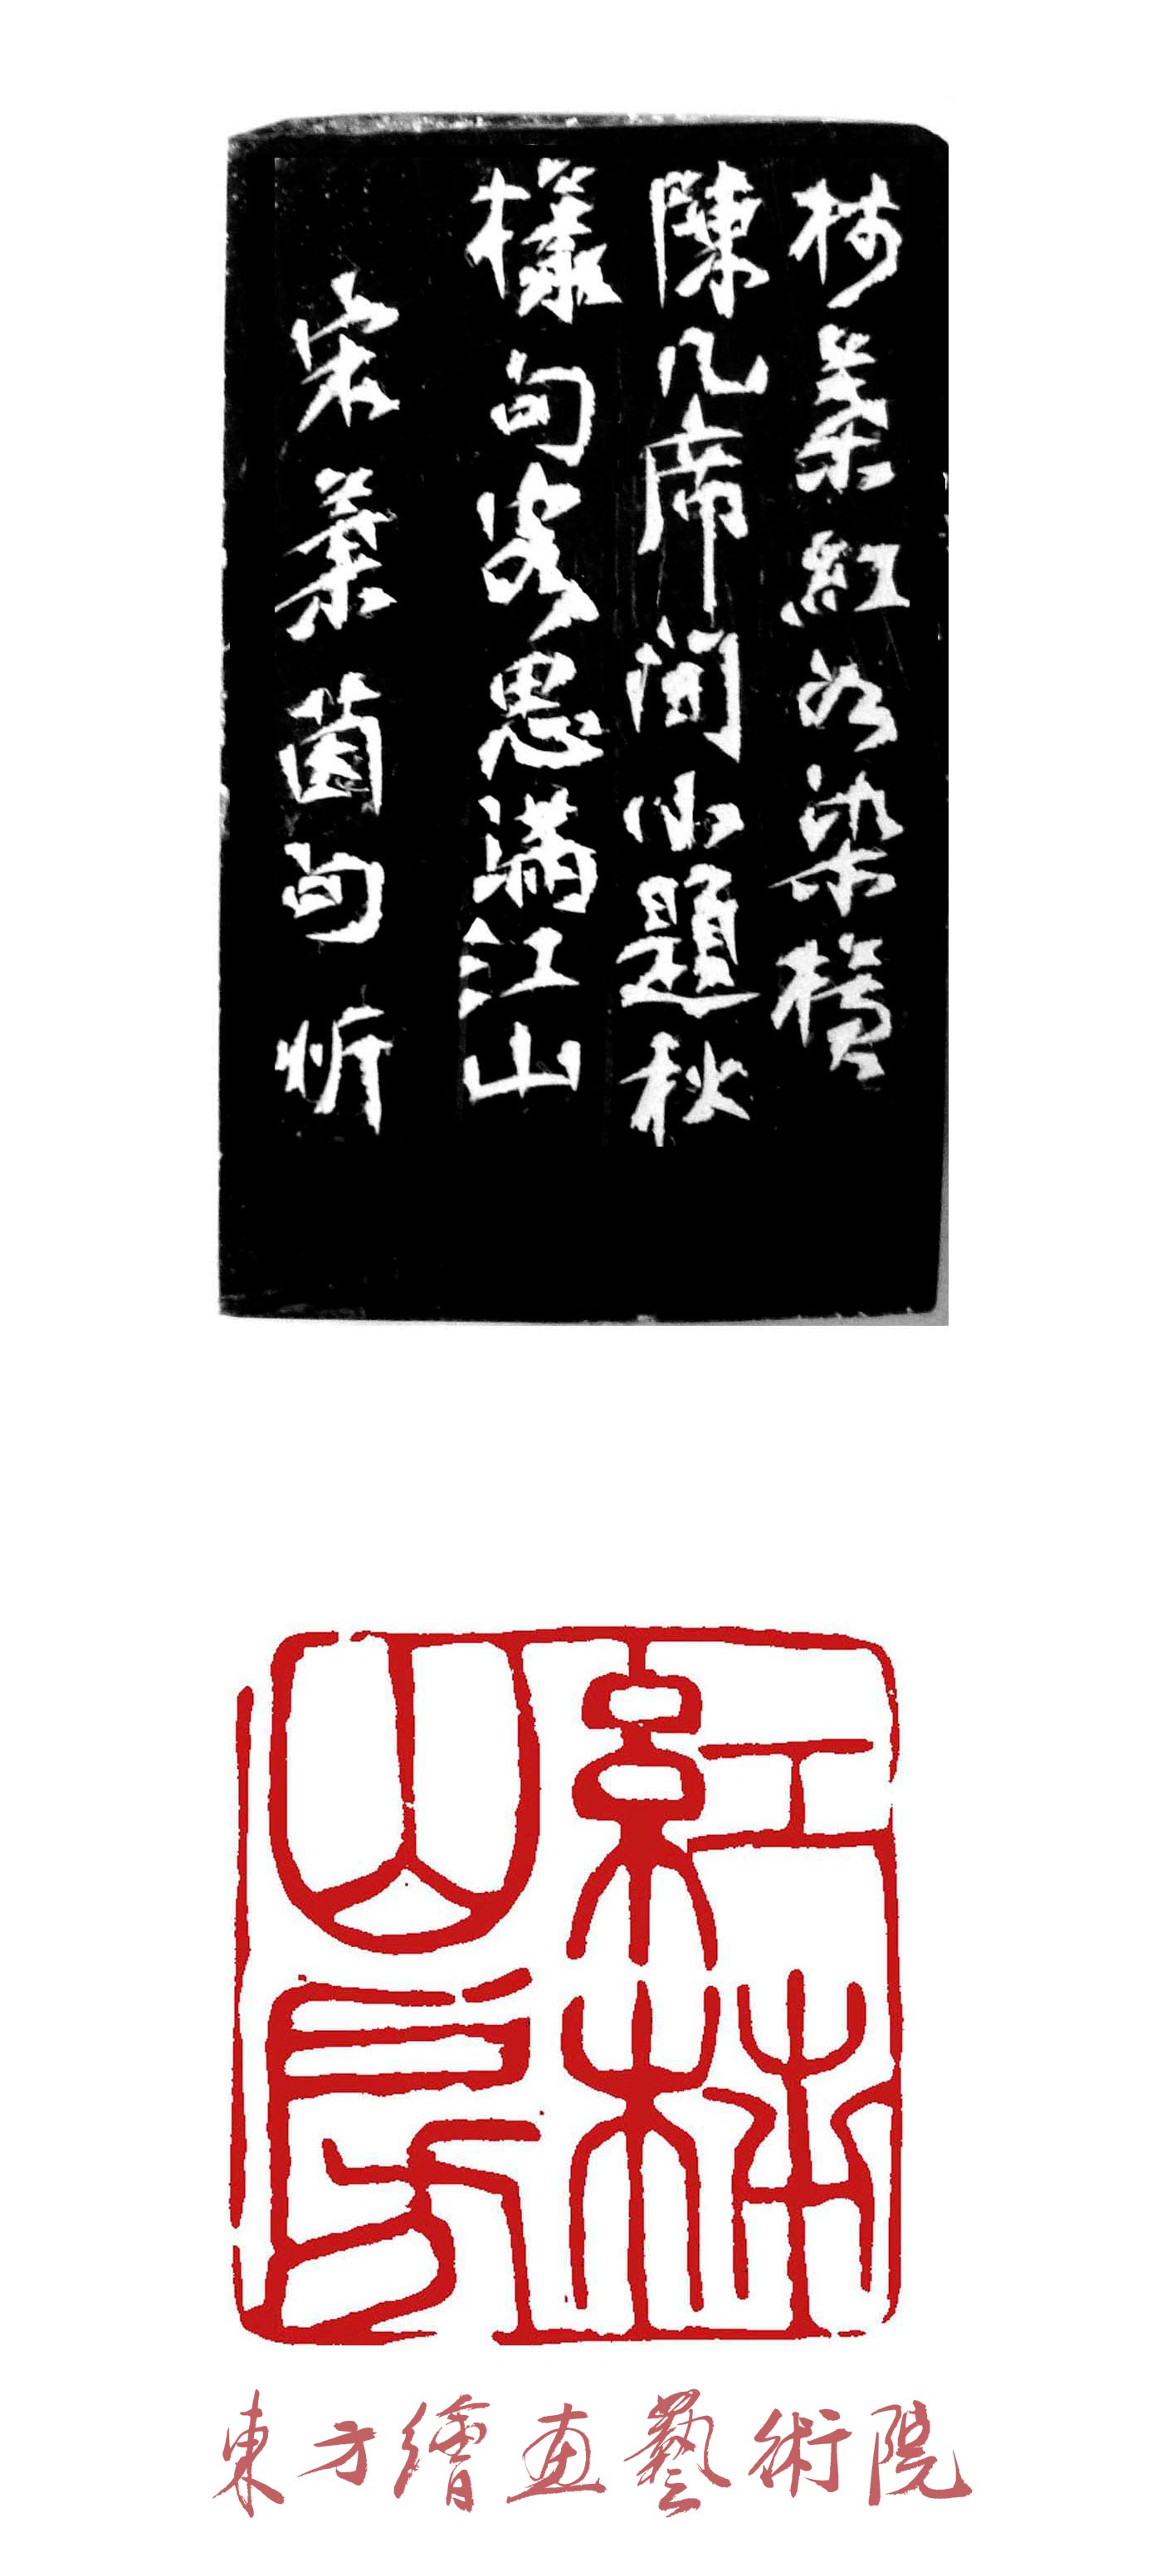 林葉紅如染横
陳几席間小題秋
樣句客思滿江山
宋葉茵句忻
紅林山房
東方繪画藝術院